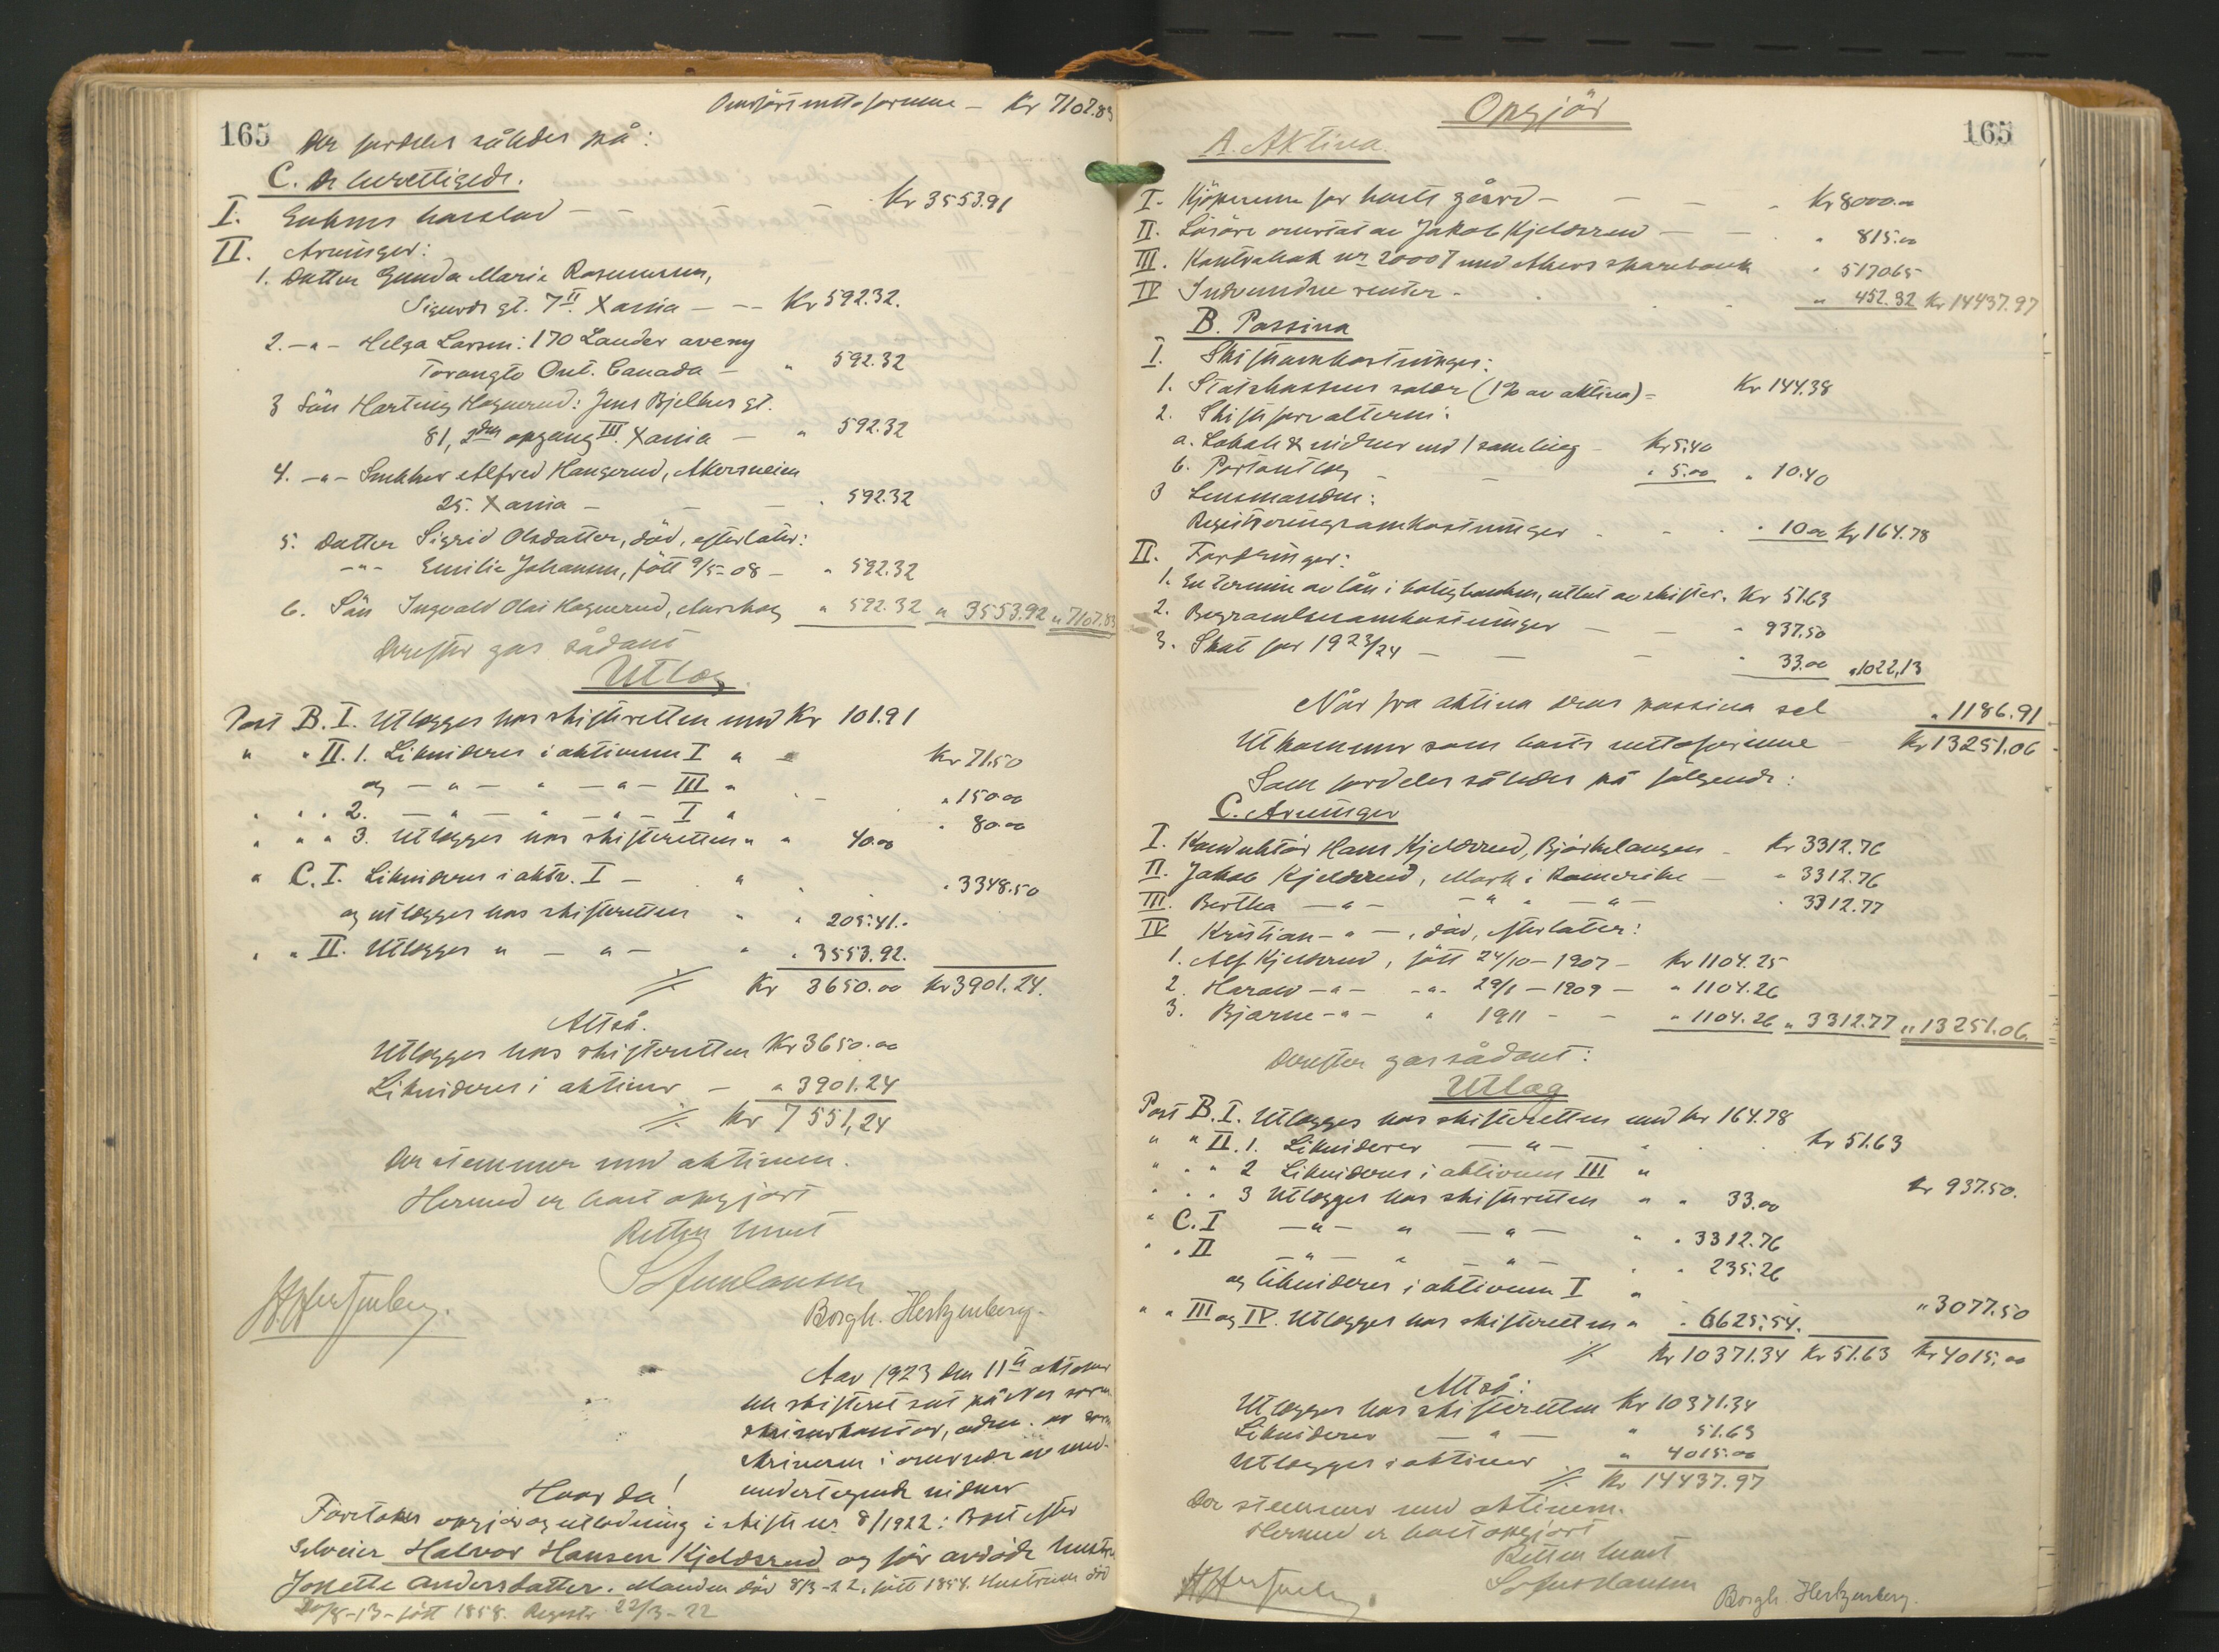 165
Overført nettoformue - Kr 7107.83
der fordeles således på:
C. De berettigede.
I. Enkens boslod - Kr 3553.91
II. Arvinger:
1. Datter Gunda Marie Rasmussen,
Sigurds gt. 7 II. Xania - - - Kr 592.32.
2. - " - Helga Larsen: 170 Lauder aveny
Toronto Ont. Canada - " 592.32
3 Søn Hartvig Hagnerud: Jens Bjelkes gt.
81, 2den opgang III. Xania - " 592.32
4. - " - Snekker Alfred Haugerud, Akersveien
25. Xania - - - " 592.32
5. Datter Sigrid Olsdatter, död, efterlater:
- " - Emilie Johansen, fött 9/5-08 - " 592.32
6. Sön Ingvald Olai Hagnerud, Aurskog " 592.32 " 3553.92 " 7107.83
Derefter gas sådant
Utlæg.
Post B. I. Utlægges hos skifteretten med Kr 101.91
" " II. 1. Likvideres i aktivum I " - Kr 71.50
og - " - " - " - III " - " 150.00
" " " 2. - " - " - " - I " " 80.00
" " " 3. Utlægges hos skifteretten " " 40.00
" C. I. Likvideres i aktv. I - " " 3348.50
og utlægges hos skifteretten " " 205.41.
" " II. Utlægges " - " - " " 3553.92.
Kr 3650.00 Kr 3901.24.
Altså.
Utlægges hos skifteretten Kr 3650.00
Likvideres i aktiver - " 3901.24
Kr 7551,24
Der stemmer med aktivum.
Hermed er boet opgjort
Retten hævet
Borgh. Hertzenberg.
Aar 1923 den 11te oktober
blev skifteret sat på Nes soren-
skriverkontor, adm. av soren-
skriveren i overvær av med-
undertegnede vidner
Hvorda!
Foretokes opgjör og utlodning i skifte nr. 8/1922: Boet efter
Selveier Halvor Hansen Kjeldsrud og før avdöde hustru
Josette Andersdatter. Manden död 8/3-22, fött 1854. Hustruen död
20/8-13 - fött 1858. Registr. 22/3-22
Opgjör
165
A. Aktiva.
I. Kjöpesum for boets gård - - - - Kr 8000.00
II. Lösöre overtat av Jakob Kjeldsrud - - " 815.00
III. Kontrabok nr 20007 med Akers sparebank " 5170.65
IV Indvundne renter - " 452.32 Kr 14437.97
B. Passiva
I. Skifteomkostninger:
1. Statskassens salær (1% av aktiva) - Kr 144.38
2. Skifteforvalteren:
a. Lokale & vidner ved 1 samling - Kr 5.40
b. Portoutlæg - " 5.00 " 10.40
3 Lensmanden:
Registreringsomkostninger - - " 10.00 Kr 164.78
II. Fordringer:
1. En termin av lån i boligbanken, utlåt av skifter. Kr 51.63
2. Begravelsesomkostninger - - " 937.50
3. Skat for 1923/24 - - - " 33.00 " 1022,13
" 1186.91
Når fra aktiva dras passiva sel
Utkommer som boets nettoformue - Kr 13251.06
Som fordeles således på følgende:
C. Arvinger
I. Konduktör Hans Kjeldsrud, Bjørkelangen - Kr 3312.76
II. Jakob Kjeldsrud, Mork i Romerike - " 3312.76
III. Bertha - " - - " - - " - " 3312.77
IV Kristian - " -, död, efterlater:
1. Alf Kjeldsrud, fött 24/10-1907 - Kr 1104.25
2. Harald - " - - " - 29/1-1909 - " 1104.26
3. Bjarne - " - " 1911 - - " 1104.26 " 3312.77 " 13251.06.
Derefter gas sådant:
Utlæg
Post B. I. Utlægges hos skifteretten med Kr 164.78
" " II. 1. Likviderer - " - " Kr 51.63
" " " 2 Likvideres i aktivum III " Kr 937.50.
" " " 3 Utlægges hos skifteretten " " 33.00
" C. I - " - " - " - " " 3312.76
" " II - " - " - " - " " 235.26
og likvideres i aktivum I " " 3077.50
" " III og IV. Utlægges hos skifteretten " " 6625.54.
Kr 10371.34 Kr 51.63 Kr 4015.00
Altså:
Utlægges hos skifteretten Kr 10371.34
Likviderer - " - " 51.63
Utlægges i aktiver " 4015.00
Kr 14437.97
Der stemmer med aktivum.
Hermed er boet opgjort
Retten hævet
Borgh. Hertzenberg.